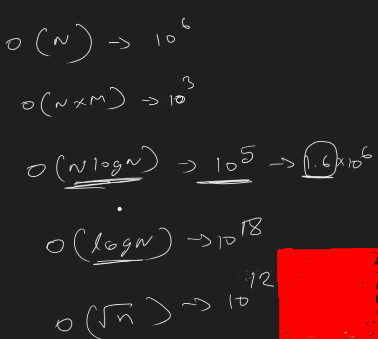 O(N) → 10⁶
O(N×M) → 10³
O(N logN) → 10⁵ → 1.6×10⁶
O(logN) → 10¹⁸
O(√n) → 10¹²